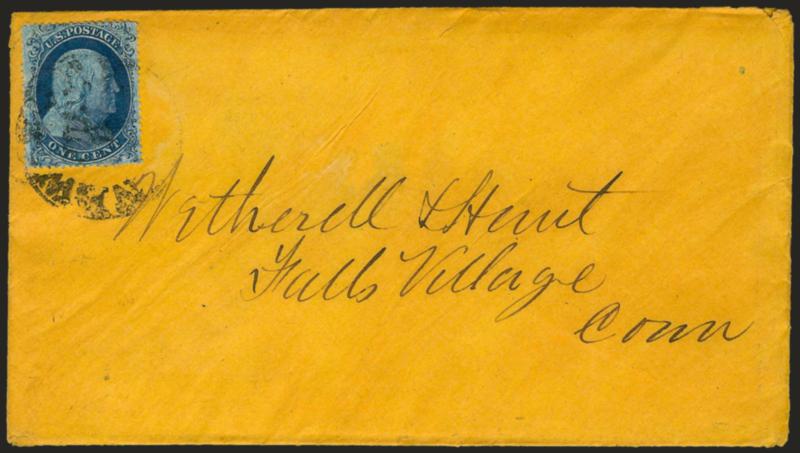 U.S. POSTAGE
ONE CENT
Wetherell & Hunt
Falls Village
Conn